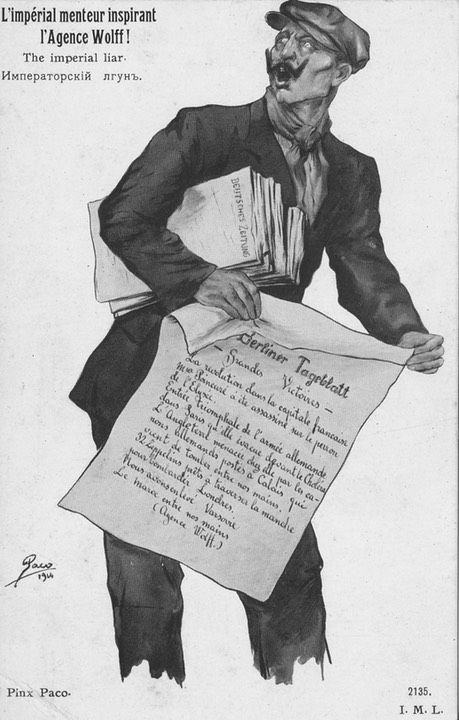 L'impérial menteur inspirant
l'Agence Wolff!
The imperial liar.
Императорскій лгунъ.
DEUTSCHES ZEITUNG
Berliner Tageblatt
— Grandes Victoires —
La révolution dans la capitale française
Mʳ Poincaré a été assassiné sur le perron
de l'Elysée.
Entrée triomphale de l'armée allemande
dans Paris qu'elle évacue devant le Choléra
L'Angleterre menacée chez elle par les ca-
nons allemands postés à Calais, qui
vient de tomber entre nos mains.
32 Zeppelins prêts à traverser la manche
pour bombarder Londres.
Nous avons enlevé Varsovie
Le maroc entre nos mains
(Agence Wolff.)
Paco
1914
Pinx Paco.
2135.
I. M. L.